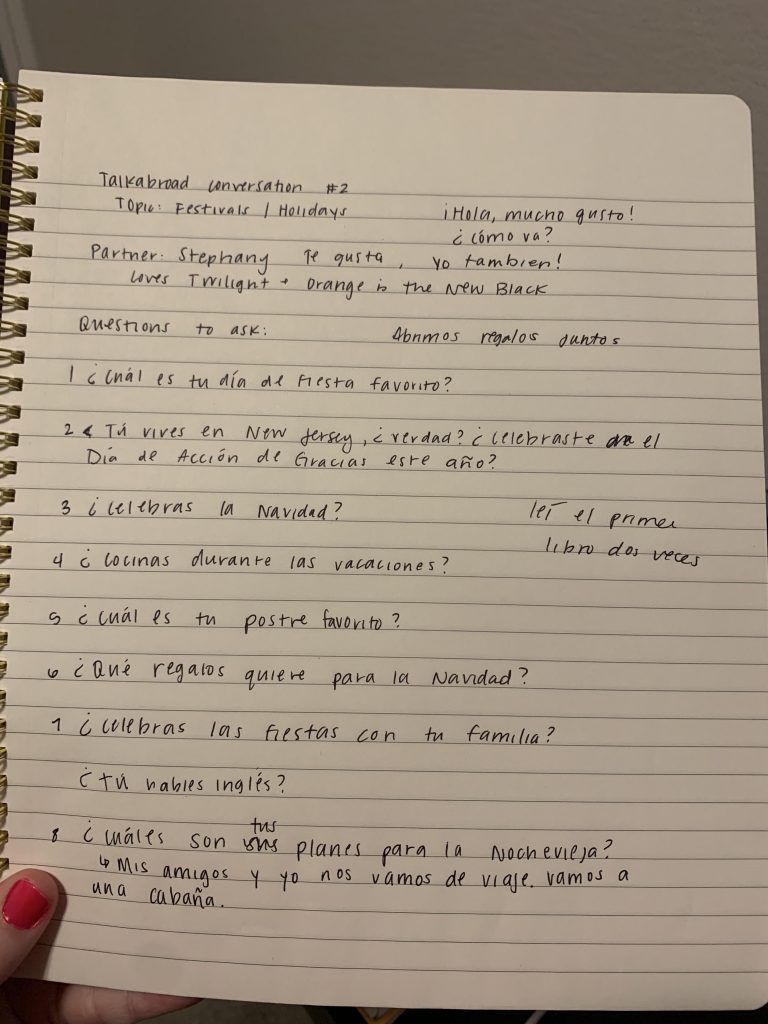 Talkabroad conversation #2
Topic: Festivals / Holidays
¡Hola, mucho gusto!
¿cómo va?
Partner: Stephany Te gusta, yo tambien!
Loves Twilight + Orange is the New Black
Questions to ask:
Abrimos regalos juntos
1 ¿Cuál es tu día de fiesta favorito?
2 Tú vives en New Jersey, ¿verdad? ¿celebraste el
Día de Acción de Gracias este año?
3 ¿celebras la Navidad?
leí el primer
libro dos veces
4 ¿cocinas durante las vacaciones?
5 ¿cuál es tu postre favorito?
6 ¿Qué regalos quiere para la Navidad?
7 ¿celebras las fiestas con tu familia?
¿tú hables inglés?
8 ¿cuáles son tus planes para la Nochevieja?
↳ Mis amigos y yo nos vamos de viaje. vamos a
una cabaña.